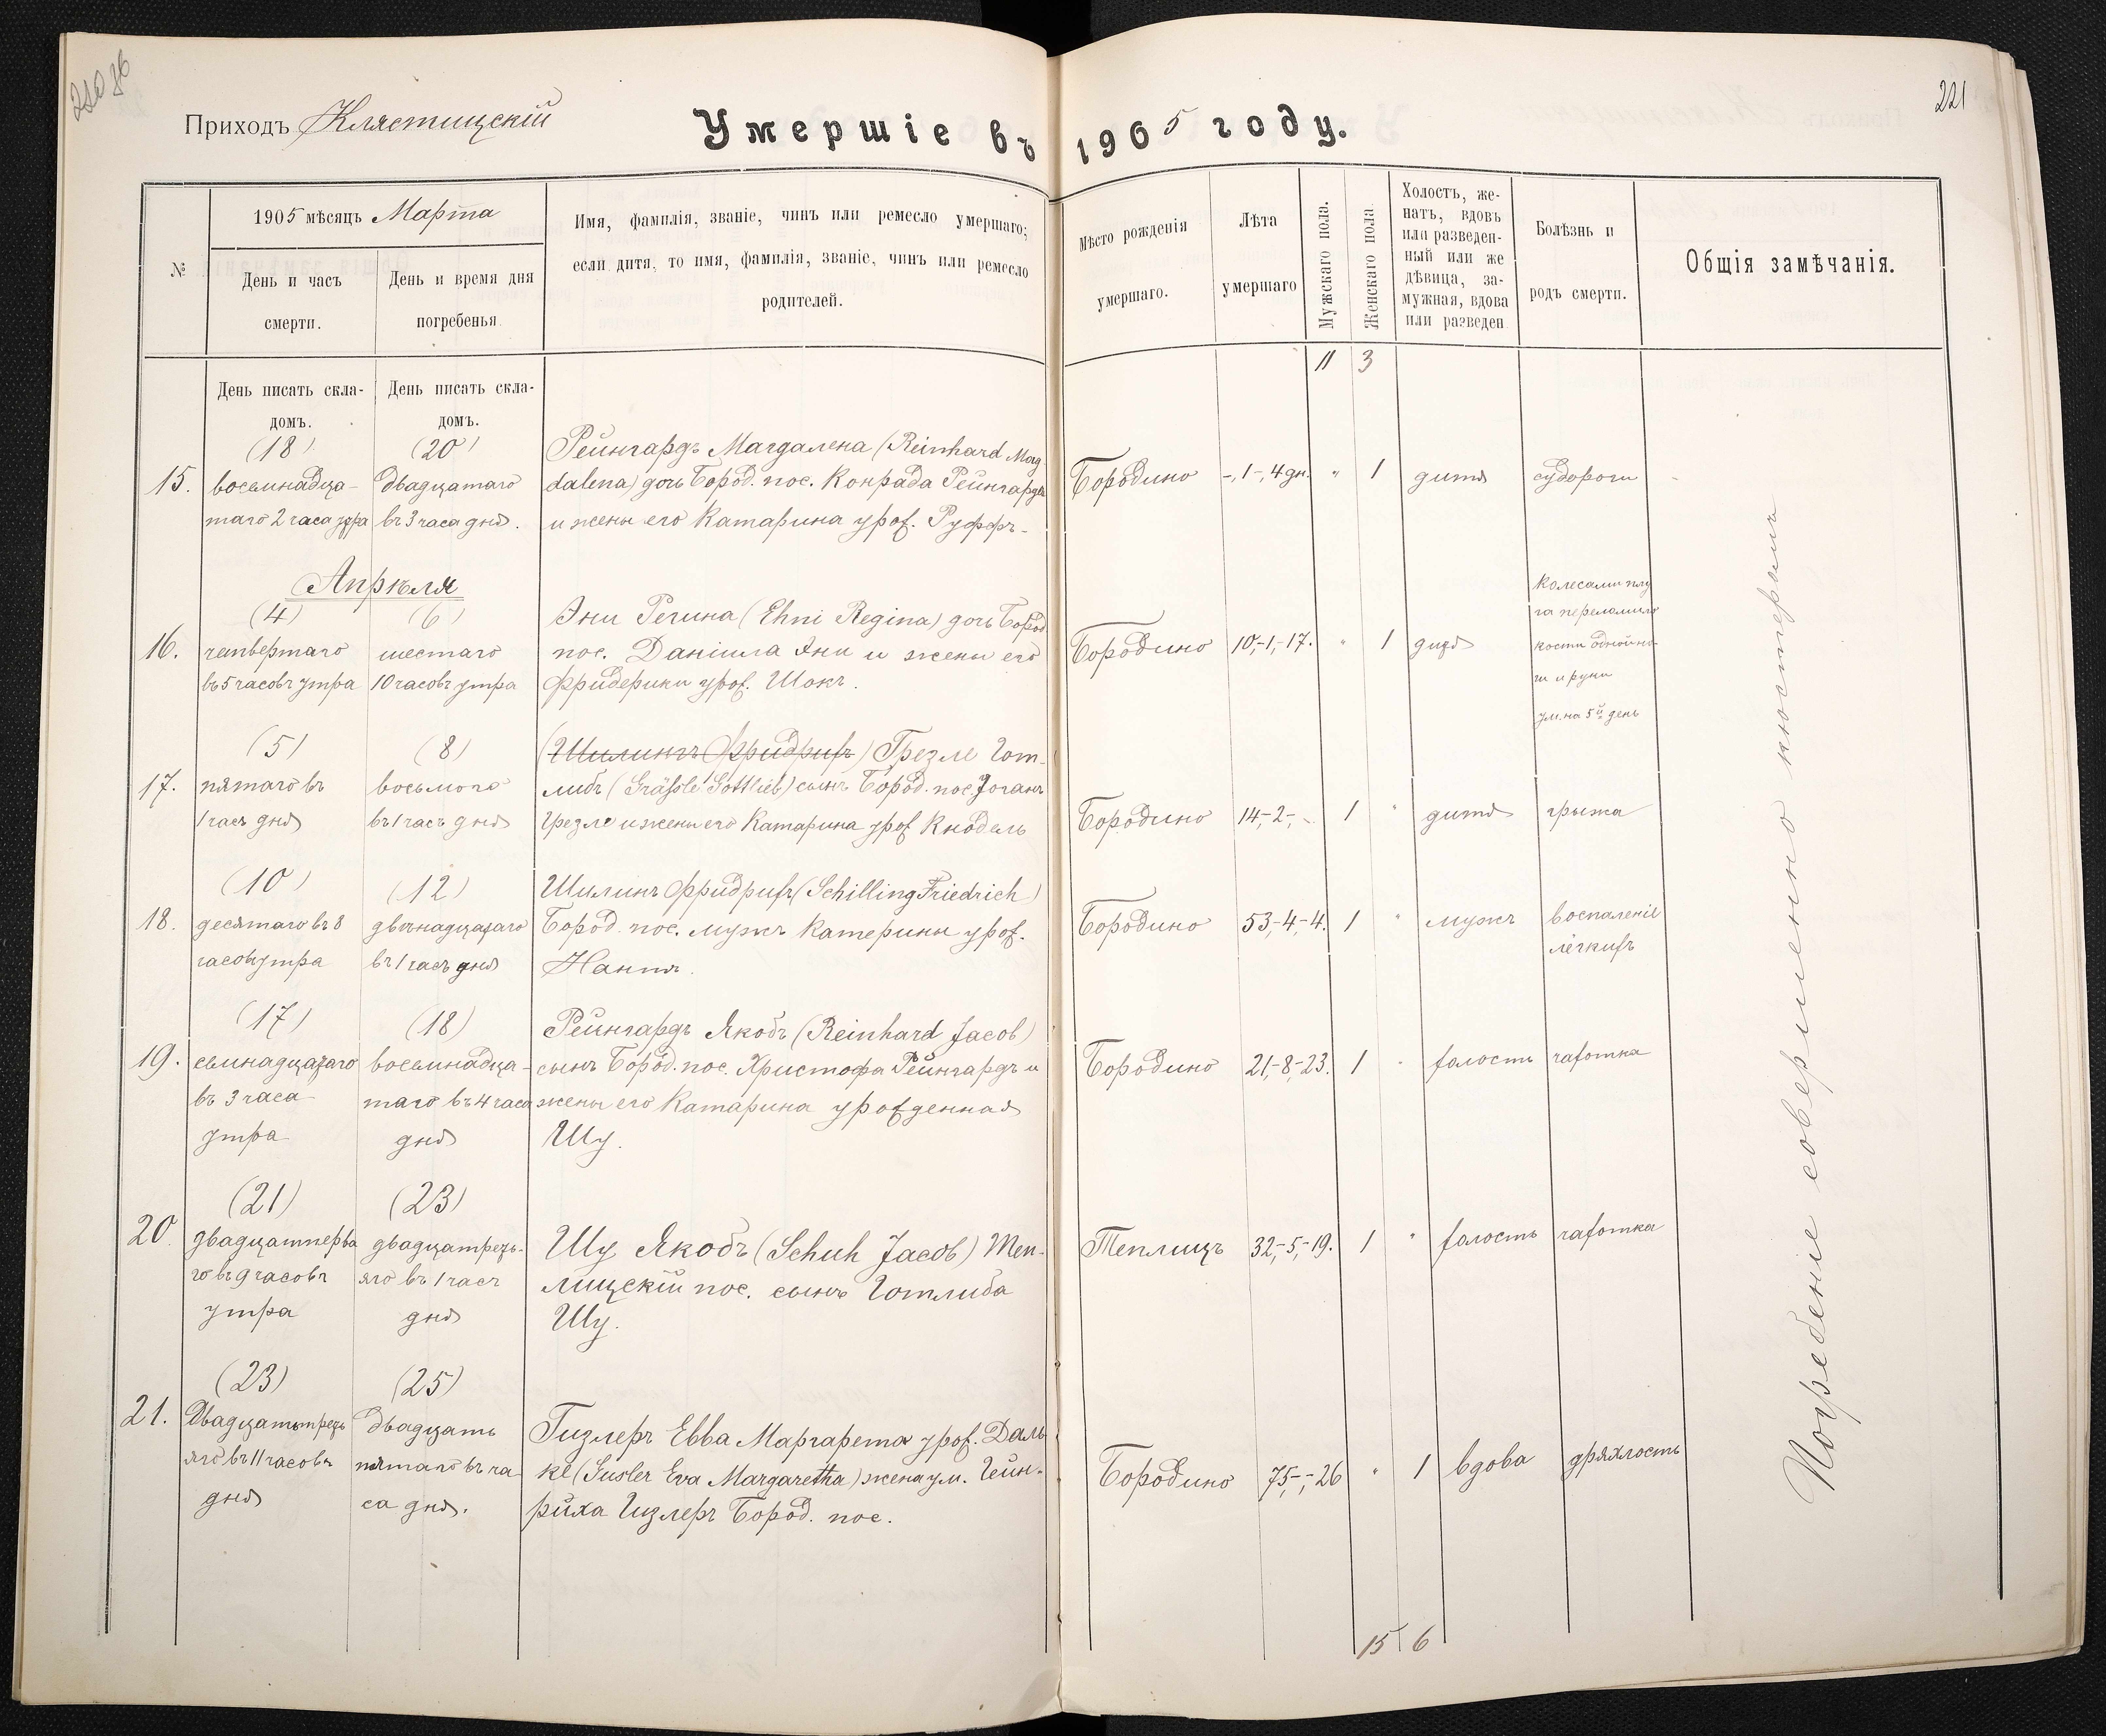 221
Приходъ Клястицскій
Умершіе въ 1905 году.
№
1905 мѣсяцъ Марта
День и часъ
смерти.
День и время дня
погребенья
Имя, фамилія, званіе, чинъ или ремесло умершаго;
если дитя, то имя, фамилія, званіе, чинъ или ремесло
родителей.
Мѣсто рожденія
умершаго.
Лѣта
умершаго
Мужскаго пола.
Женскаго пола.
Холостъ, же-
натъ, вдовъ
или разведен-
ный или же
дѣвица, за-
мужная, вдова
или разведен.
Болѣзнь и
родъ смерти.
Общія замѣчанія.
11 3
День писать скла-
домъ.
День писать скла-
домъ.
15.
(18)
восемнадца-
таго 2 часа утра
(20)
двадцатаго
въ 3 часа дня.
Рейнгардъ Магдалена (Reinhard Mag
dalena) дочь Бород. пос. Конрада Рейнгардъ
и жены его Катарина урож. Руффъ-
Бородино
-,1-,4 дн.
" 1
дитя
судороги
Апрѣля
16.
(4)
четвертаго
въ 5 часовъ утра
(6)
шестаго
10 часовъ утра
Эни Регина (Ehni Regina) дочь Бород
пос. Даніила Эни и жены его
Фридерики урож. Шокъ.
Бородино
10,-1,-17.
" 1
дитя
колесами плу
га переломило
кости одной но-
ги и руки
ум. на 5й день
17.
(5)
пятаго въ
1 часъ дня
(8)
восьмого
въ 1 часъ дня
(Шилингъ Фридрихъ) Грезле Гот-
либъ (Gräßle Gottlieb) сынъ Бород. пос. Иоганъ
Грезле и жены его Катарина урож Кнодель
Бородино
14,-2-,-
1 "
дитя
грыжа
18.
(10)
десятаго въ 8
часовъ утра
(12)
двѣнадцатаго
въ 1 часъ дня
Шилинъ Фридрихъ (Schilling Friedrich)
Бород. пос. мужъ Катерины урож.
Бородино
53,-4,-4.
1 "
мужъ
воспаленіе
лёгкихъ
19.
(17)
семнадцатаго
въ 3 часа
утра
(18)
восемнадца-
таго въ 4 часа
дня
Рейнгардъ Якобъ (Reinhard Jacob)
сынъ Бород. пос. Христофа Рейнгардъ и
жены его Катарина урожденная
Шу.
Бородино
21,-8,-23.
1 "
холостъ
чахотка
20.
(21)
двадцатперва
го въ 9 часовъ
утра
(23)
двадцатреть-
яго въ 1 часъ
дня
Шу Якобъ (Schuh Jacob) Теп-
лицскій пос. сынъ Готлиба
Шу.
Теплицъ
32,-5,-19.
1 "
холостъ
чахотка
21.
(23)
Двадцатьтреть
яго въ 11 часовъ
дня
(25)
двадцать
пятаго въ ча
са дня.
Гизлеръ Евва Маргарета урож. Даль
ке (Gusler Eva Margaretha) жена ум. Гейн-
риха Гизлеръ Бород. пос.
Бородино
75,-,-26
" 1
вдова
дряхлость
Погребеніе совершенно кюстерамъ
15 6